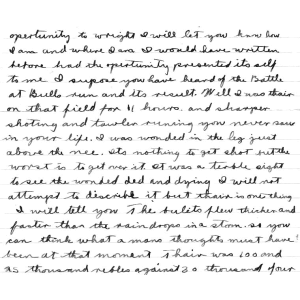 opertunity to wright I will let you know how
I am and where I am I would have written
before had the opertunity presented its self
to me I supose you have heard of the Battle
at Bulls run and its result Will I was thair
on that field for 11 hours. and sharper
shoting and tawler runing you never saw
in your life. I was wonded in the leg just
above the nee. Its nothing to get shot but the
worst is to get over it. It was a terible sight
to see the wonded ded and dying I will not
attempt to describe it but thair is one thing
I will tell you the bulits flew thicker and
faster than the rain drops in a storm. so you
can think what a mans thoughts must have
been at that moment thair was 100 and
25 thousand rebles against 30 thousand of our